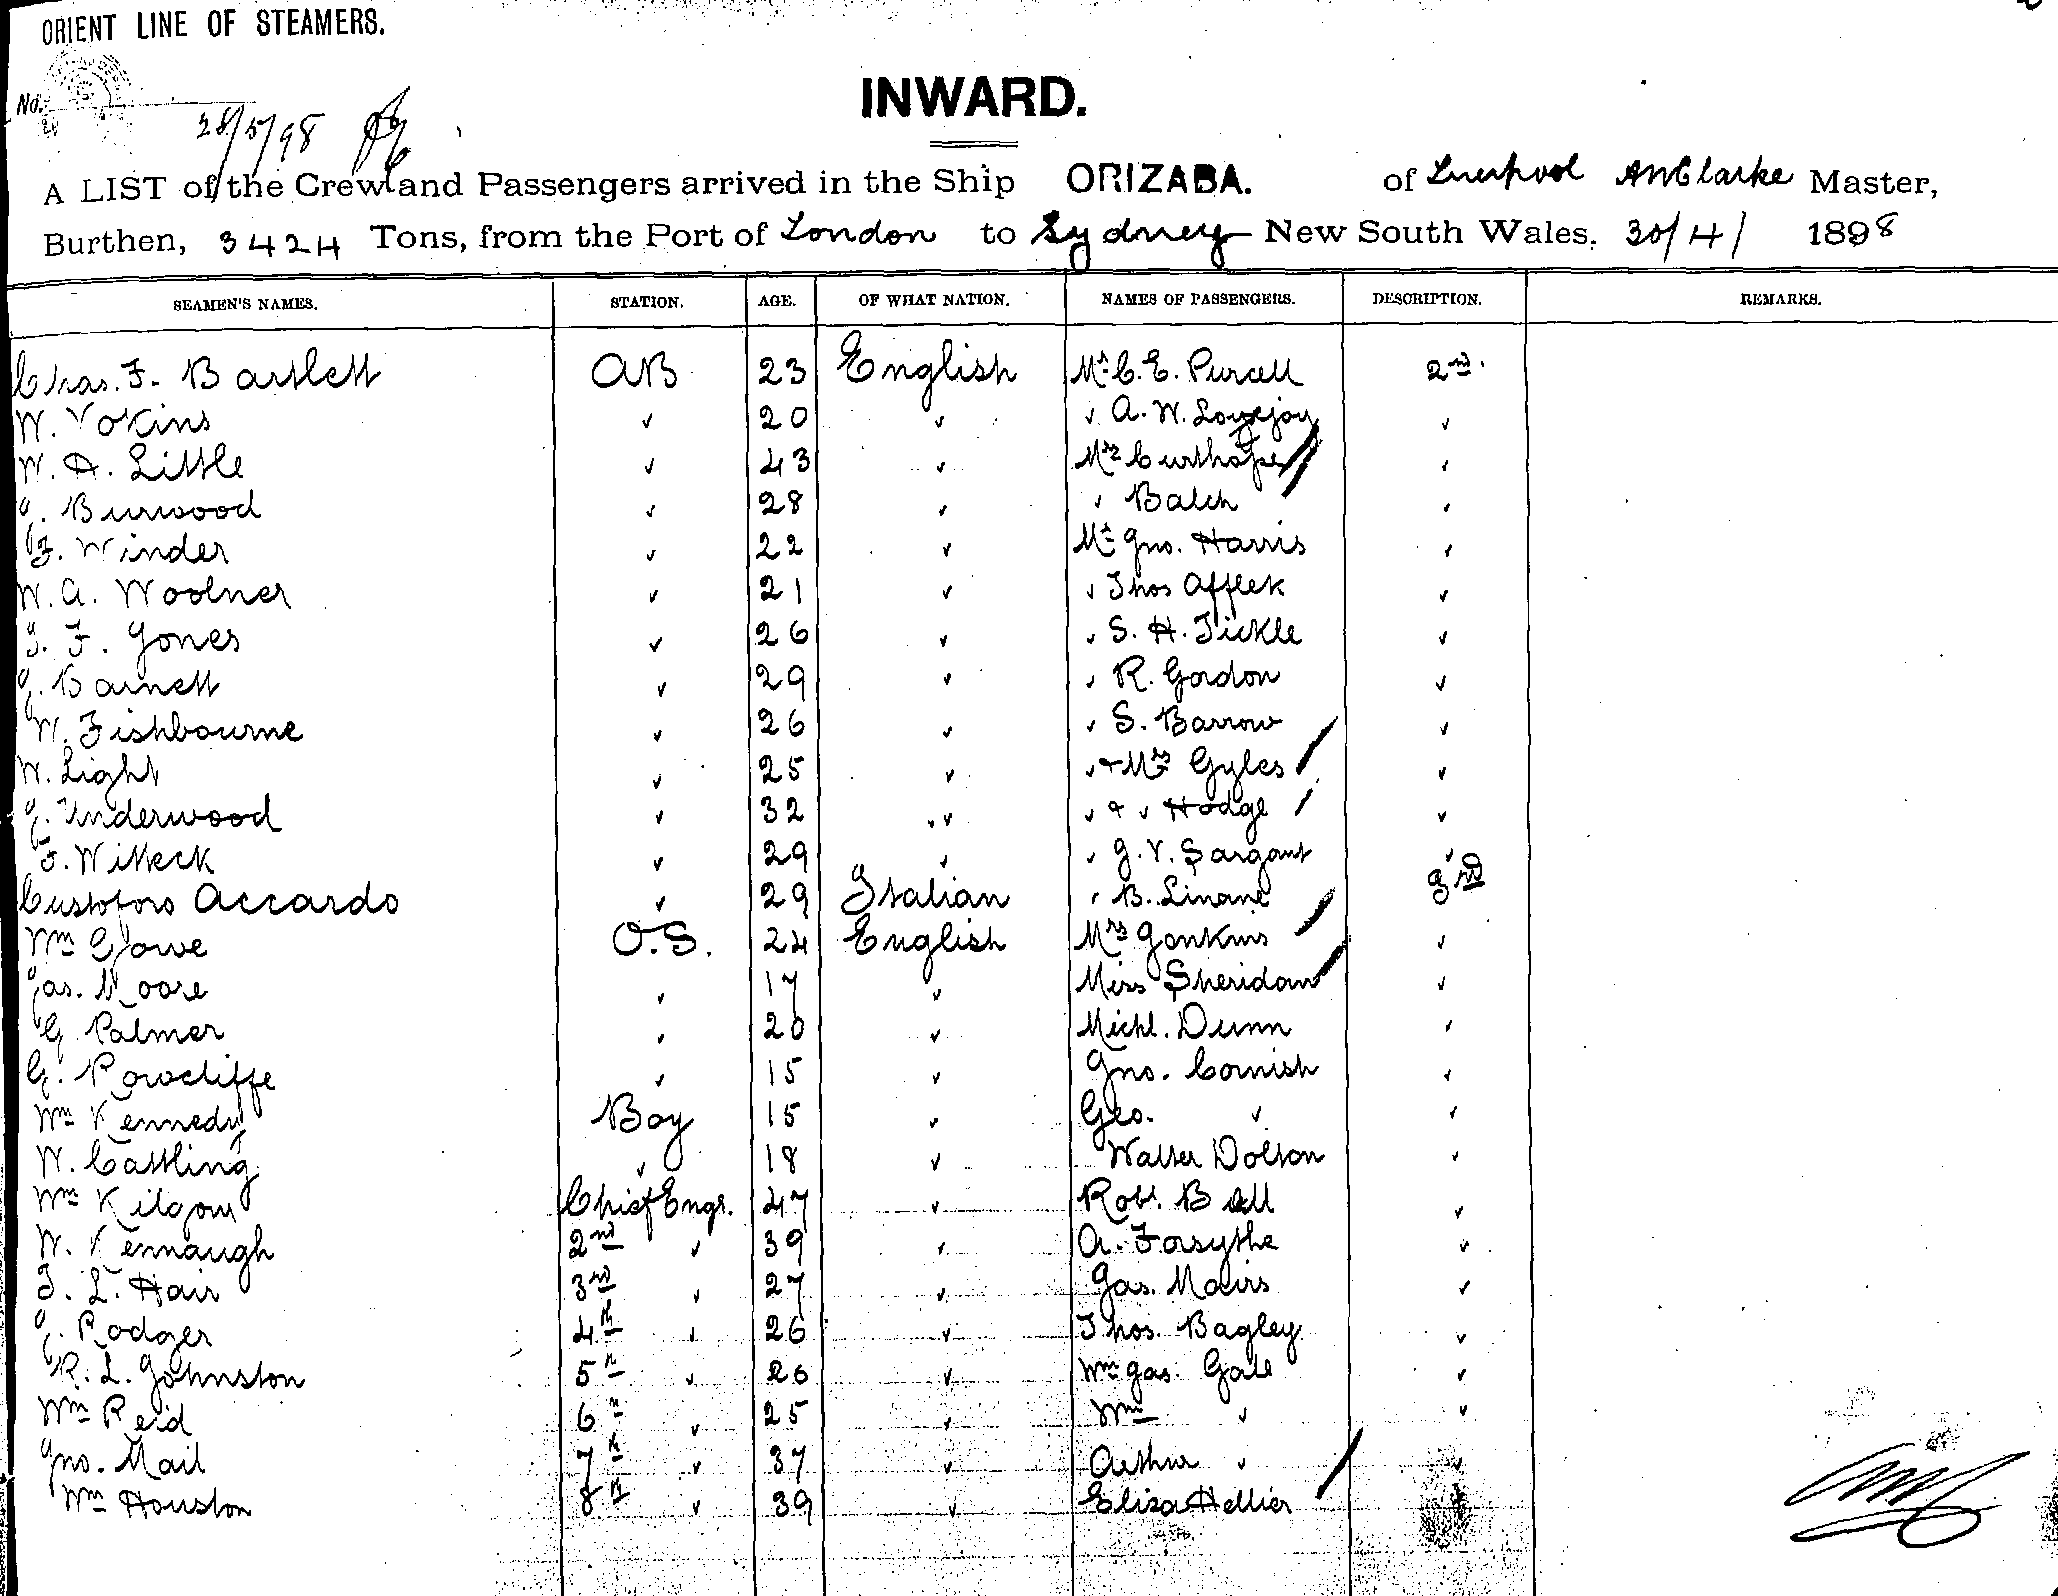 ORIENT LINE OF STEAMERS.
No.
28/5/98
INWARD.
A LIST of the Crew and Passengers arrived in the Ship ORIZABA. of Liverpool A N Clarke Master,
Burthen, 3424 Tons, from the Port of London to Sydney New South Wales, 30/4/ 1898
SEAMEN'S NAMES. STATION. AGE. OF WHAT NATION. NAMES OF PASSENGERS. DESCRIPTION. REMARKS.
Chas. F. Bartlett AB 23 English Mr C. E. Purcell 2nd.
W. Vokins ✓ 20 ✓ ✓ A. W. Lovejoy ✓
W. H. Little ✓ 43 ✓ Mrs Curthope ✓
J. Burwood ✓ 28 ✓ ✓ Balch ✓
G. Winder ✓ 22 ✓ Mr Jno. Harris ✓
W. A. Woolner ✓ 21 ✓ ✓ Thos Afflek ✓
J. F. Jones ✓ 26 ✓ ✓ S. H. Tickle ✓
J. Barnett ✓ 29 ✓ ✓ R. Gordon ✓
W. Fishbourne ✓ 26 ✓ ✓ S. Barrow ✓
W. Light ✓ 25 ✓ ✓ + Mrs Gyles ✓
J. Underwood ✓ 32 ✓✓ ✓ + ✓ Hodge ✓
F. Witteck ✓ 29 ✓ ✓ J. V. Sargant ✓
Custoforo Accardo ✓ 29 Italian ✓ B. Linane 3rd
Wm Gowe O.S. 24 English Mrs Jonkins ✓
Jas. Moore ✓ 17 ✓ Miss Sheridan ✓
G. Palmer ✓ 20 ✓ Michl. Dunn ✓
G. Rowcliffe ✓ 15 ✓ Jno. Cornish ✓
Wm Kennedy Boy 15 ✓ Geo. ✓ ✓
W. Cattling ✓ 18 ✓ Walter Dolton ✓
Wm Kilgour Chief Engr. 47 ✓ Robt. Bell ✓
W. Kennaugh 2nd ✓ 39 ✓ A. Forsythe ✓
T. L. Hair 3rd ✓ 27 ✓ Jas. Mairs ✓
J. Rodger 4th ✓ 26 ✓ Thos. Bagley ✓
R. L. Johnston 5th ✓ 26 ✓ Wm Jas. Gale ✓
Wm Reid 6th ✓ 25 ✓ Wm ✓ ✓
Jno. Mail 7th ✓ 37 ✓ Arthur ✓ ✓
Wm Houston 8th ✓ 39 ✓ Eliza Hellier